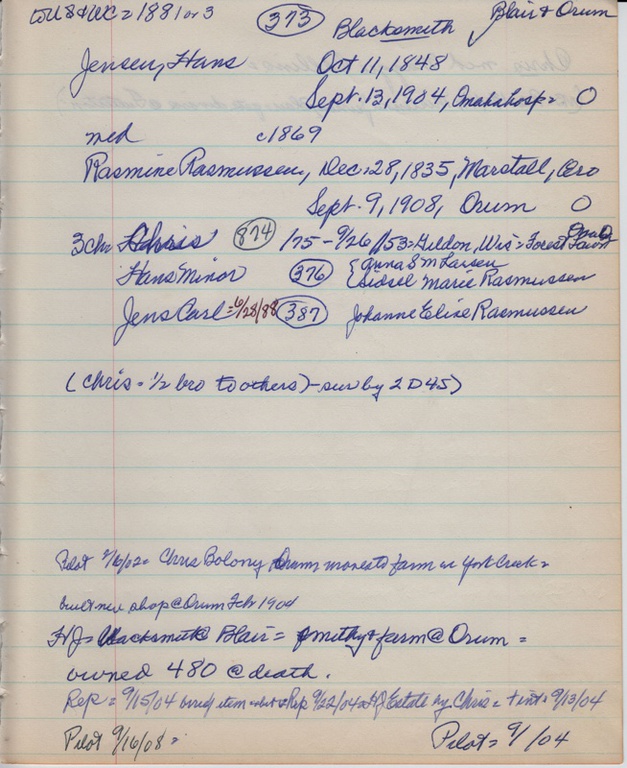 to US & WC = 1881 or 3 (373) Blacksmith Blair & Orum
Jensen, Hans Oct 11, 1848
Sept. 13, 1904, Omaha hosp = O
md c1869
Rasmine Rasmussen, Dec. 28, 1835, Marstall, Aro
Sept. 9, 1908, Orum O
3 ch Chris (874) /75 - 9/26/153 = Wis = Forest
Hans Minor (376) { Anna S M Larsen
Sidsel Marie Rasmussen
Jens Carl = 6/28/88 (387) Johanne Elise Rasmussen
(Chris = 1/2 bro to others) - sur by 2 D 45)
Pilot /02 = Chris Orum moves to farm on York Creek =
built new shop @ Orum Feb 1904
HJ = Blacksmith Blair = smithy & farm @ Orum =
owned 480 @ death.
Rep = 9/15/04 brief item = Rep 9/22/04 = HJ Estate by Chris = + int = 9/13/04
Pilot 9/16/08 = Pilot = 9/ /04